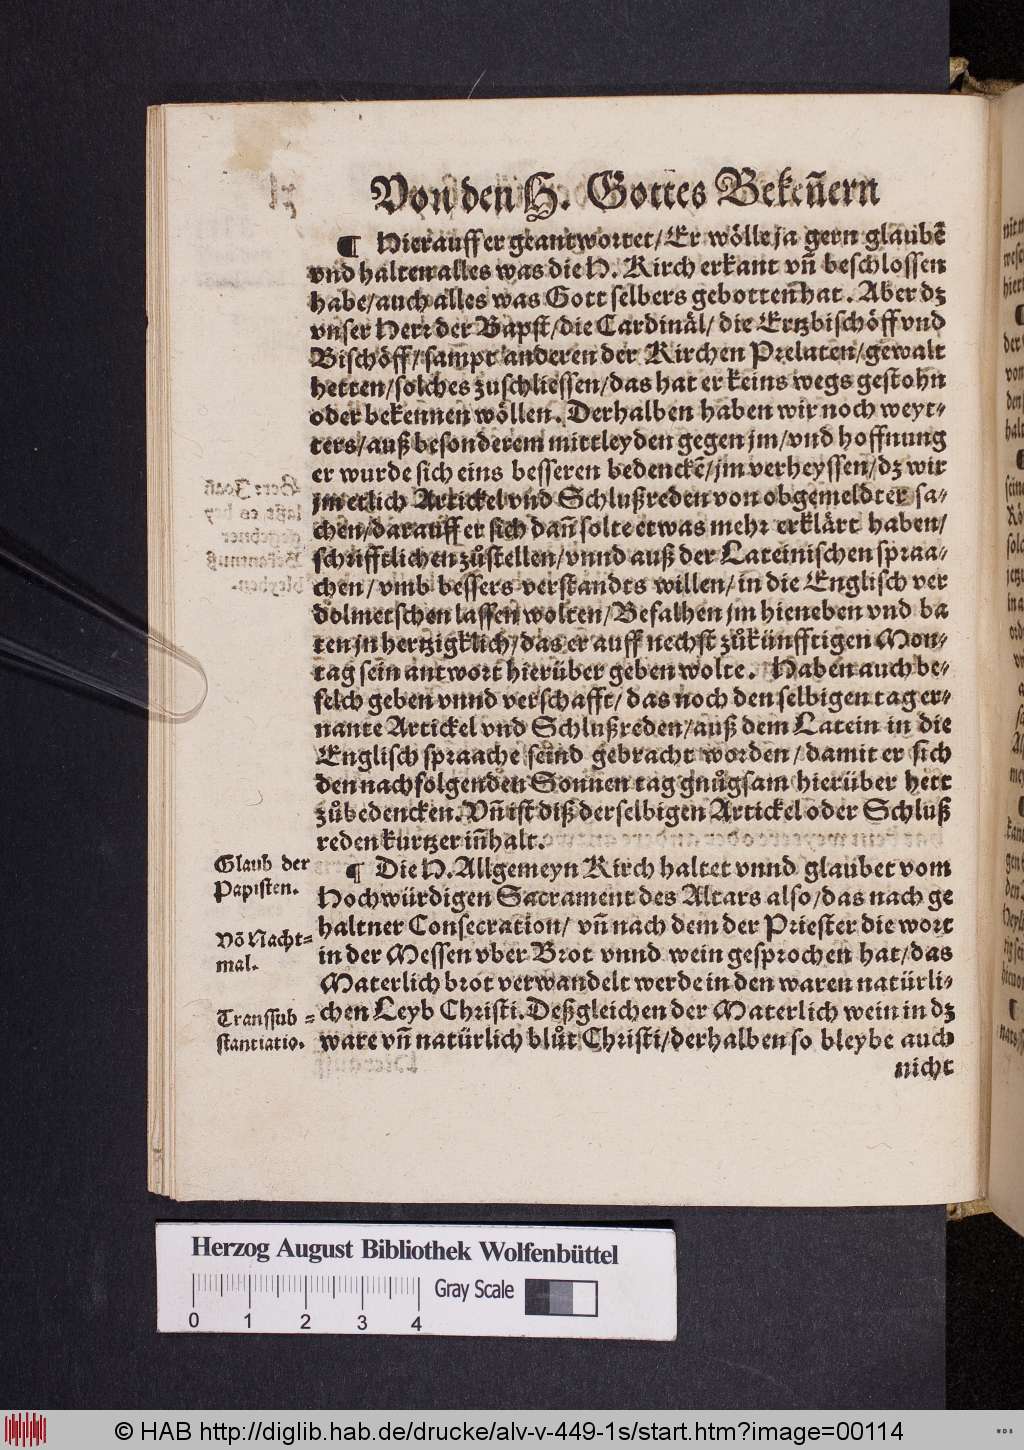 Von den H. Gottes Bekeñern
¶ Hierauff er geantwortet/ Er wölle ja gern glaubẽ
vnd halten alles was die H. Kirch erkant vñ beschlossen
habe/ auch alles was Gott selbers gebotten hat. Aber dz
vnser Herr der Bapst/ die Cardinäl/ die Ertzbischöff vnd
Bischöff/ sampt anderen der Kirchen Prelaten/ gewalt
hetten/ solches zuschliessen/ das hat er keins wegs gestohn
oder bekennen wöllen. Derhalben haben wir noch weyt-
ters/ auß besonderem mittleyden gegen jm/ vnd hoffnung
er wurde sich eins besseren bedenckẽ/ jm verheyssen/ dz wir
jm etlich Artickel vnd Schlußreden von obgemeldter sa-
chen/ darauff er sich dañ solte etwas mehr erklärt haben/
schrifftlichen zůstellen/ vnnd auß der Lateinischen spraa-
chen/ vmb bessers verstandts willen/ in die Englisch ver
dolmetschen lassen wolten/ Befalhen jm hieneben vnd ba
ten jn hertzigklich/ das er auff nechst zůkünfftigen Mon-
tag sein antwort hierüber geben wolte. Haben auch be-
felch geben vnnd verschafft/ das noch den selbigen tag er-
nante Artickel vnd Schlußreden/ auß dem Latein in die
Englisch spraache seind gebracht worden/ damit er sich
den nachfolgenden Sonnen tag gnůgsam hierüber hett
zůbedencken. Vñ ist diß derselbigen Artickel oder Schluß
reden kurtzer iñhalt.
Glaub der
Papisten.
¶ Die H. Allgemeyn Kirch haltet vnnd glaubet vom
Hochwürdigen Sacrament des Altars also/ das nach ge
haltner Consecration/ vñ nach dem der Priester die wort
Võ Nacht-
mal.
in der Messen vber Brot vnnd wein gesprochen hat/ das
Materlich brot verwandelt werde in den waren natürli-
chen Leyb Christi. Deßgleichen der Materlich wein in dz
Transsub-
stantiatio.
ware vñ natürlich blůt Christi/ derhalben so bleybe auch
nicht
Herzog August Bibliothek Wolfenbüttel
Gray Scale
0 1 2 3 4
© HAB http://diglib.hab.de/drucke/alv-v-449-1s/start.htm?image=00114